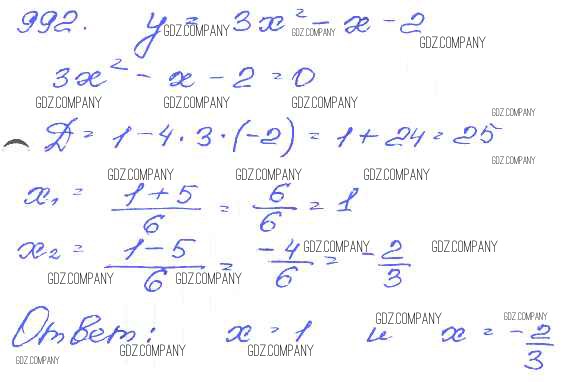 992. y = 3x² - x - 2
3x² - x - 2 = 0
Д = 1 - 4 · 3 · (-2) = 1 + 24 = 25
x₁ = (1+5)/6 = 6/6 = 1
x₂ = (1-5)/6 = -4/6 = -2/3
Ответ: x = 1 и x = -2/3
GDZ.COMPANY GDZ.COMPANY GDZ.COMPANY
GDZ.COMPANY GDZ.COMPANY GDZ.COMPANY GDZ.COMPANY
GDZ.COMPANY
GDZ.COMPANY GDZ.COMPANY GDZ.COMPANY
GDZ.COMPANY GDZ.COMPANY
GDZ.COMPANY GDZ.COMPANY
GDZ.COMPANY GDZ.COMPANY
GDZ.COMPANY GDZ.COMPANY GDZ.COMPANY